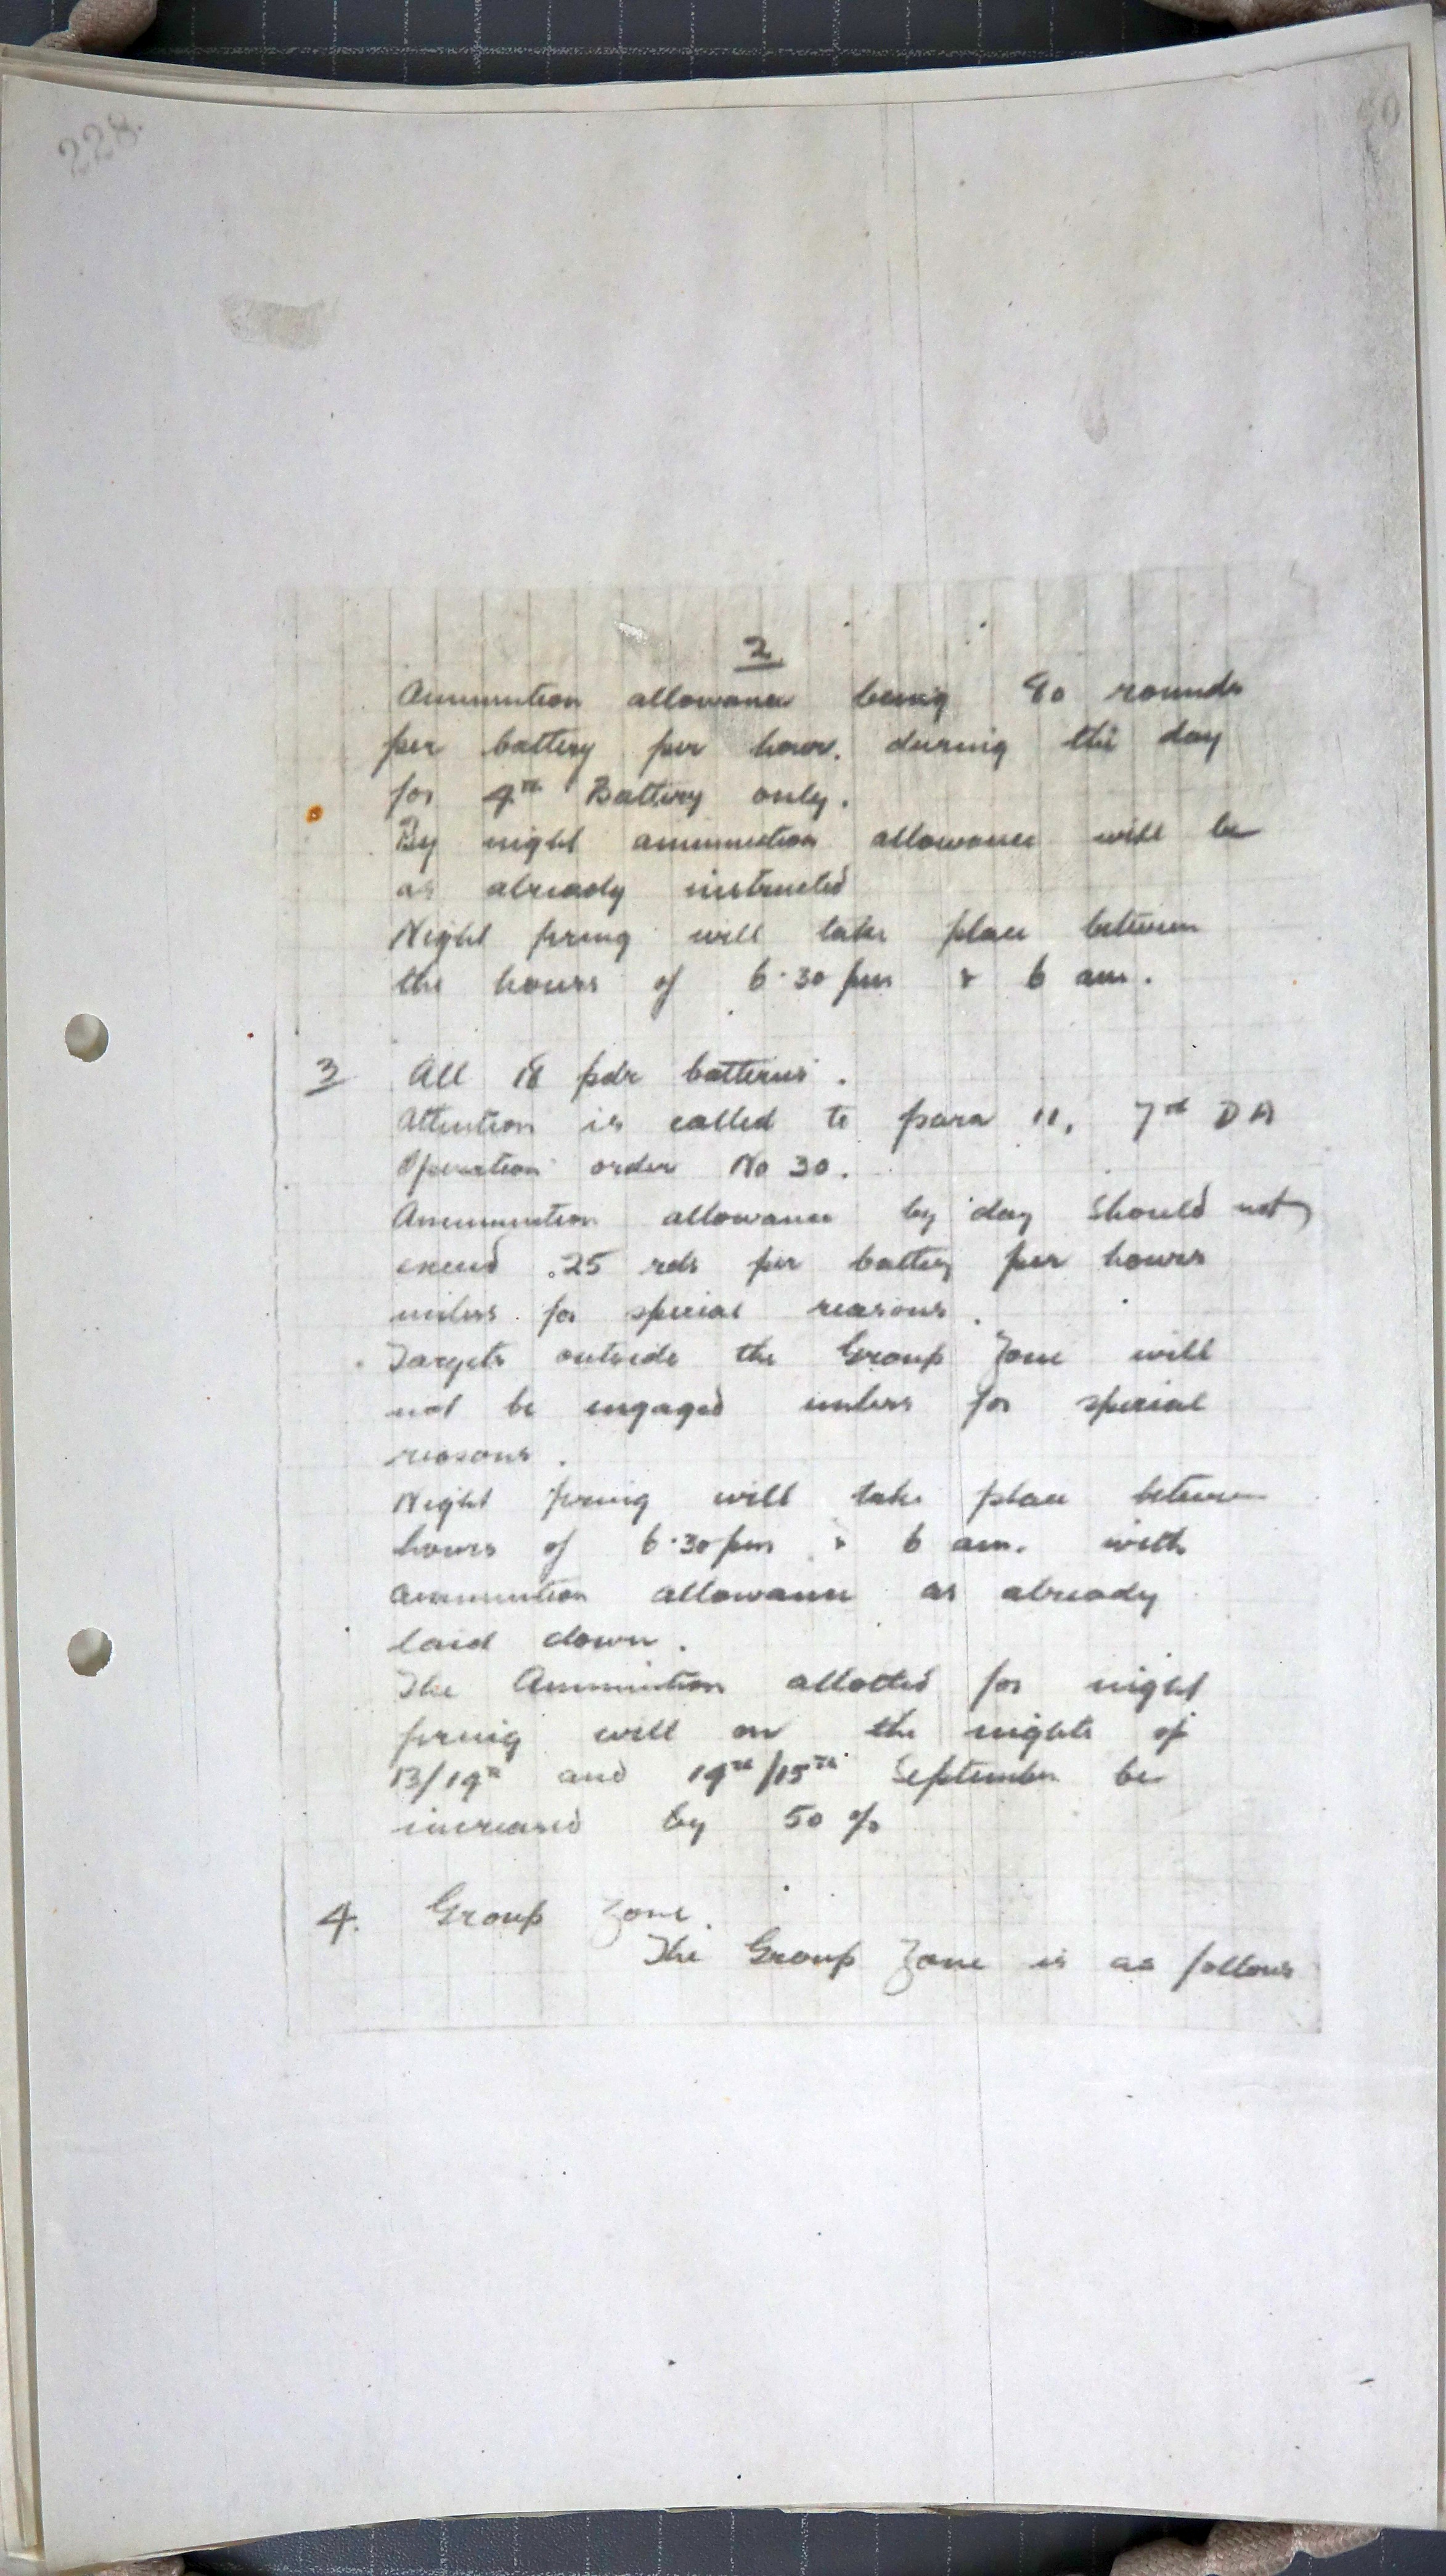 228.
2
Ammunition allowance being 40 rounds
per battery per hour. during the day
for 4th Battery only.
By night ammunition allowance will be
as already instructed
Night firing will take place between
the hours of 6.30 pm & 6 am.
3 All 18 pdr batteries.
Attention is called to para 11, 7th DA
Operation order No 30.
Ammunition allowance by day should not
exceed 25 rds per battery per hours
unless for special reasons.
Targets outside the Group Zone will
not be engaged unless for special
reasons.
Night firing will take place between
hours of 6.30 pm & 6 am. with
ammunition allowance as already
laid down.
The Ammunition allotted for night
firing will on the nights of
13/14th and 14th/15th September be
increased by 50 %
4. Group Zone.
The Group Zone is as follows